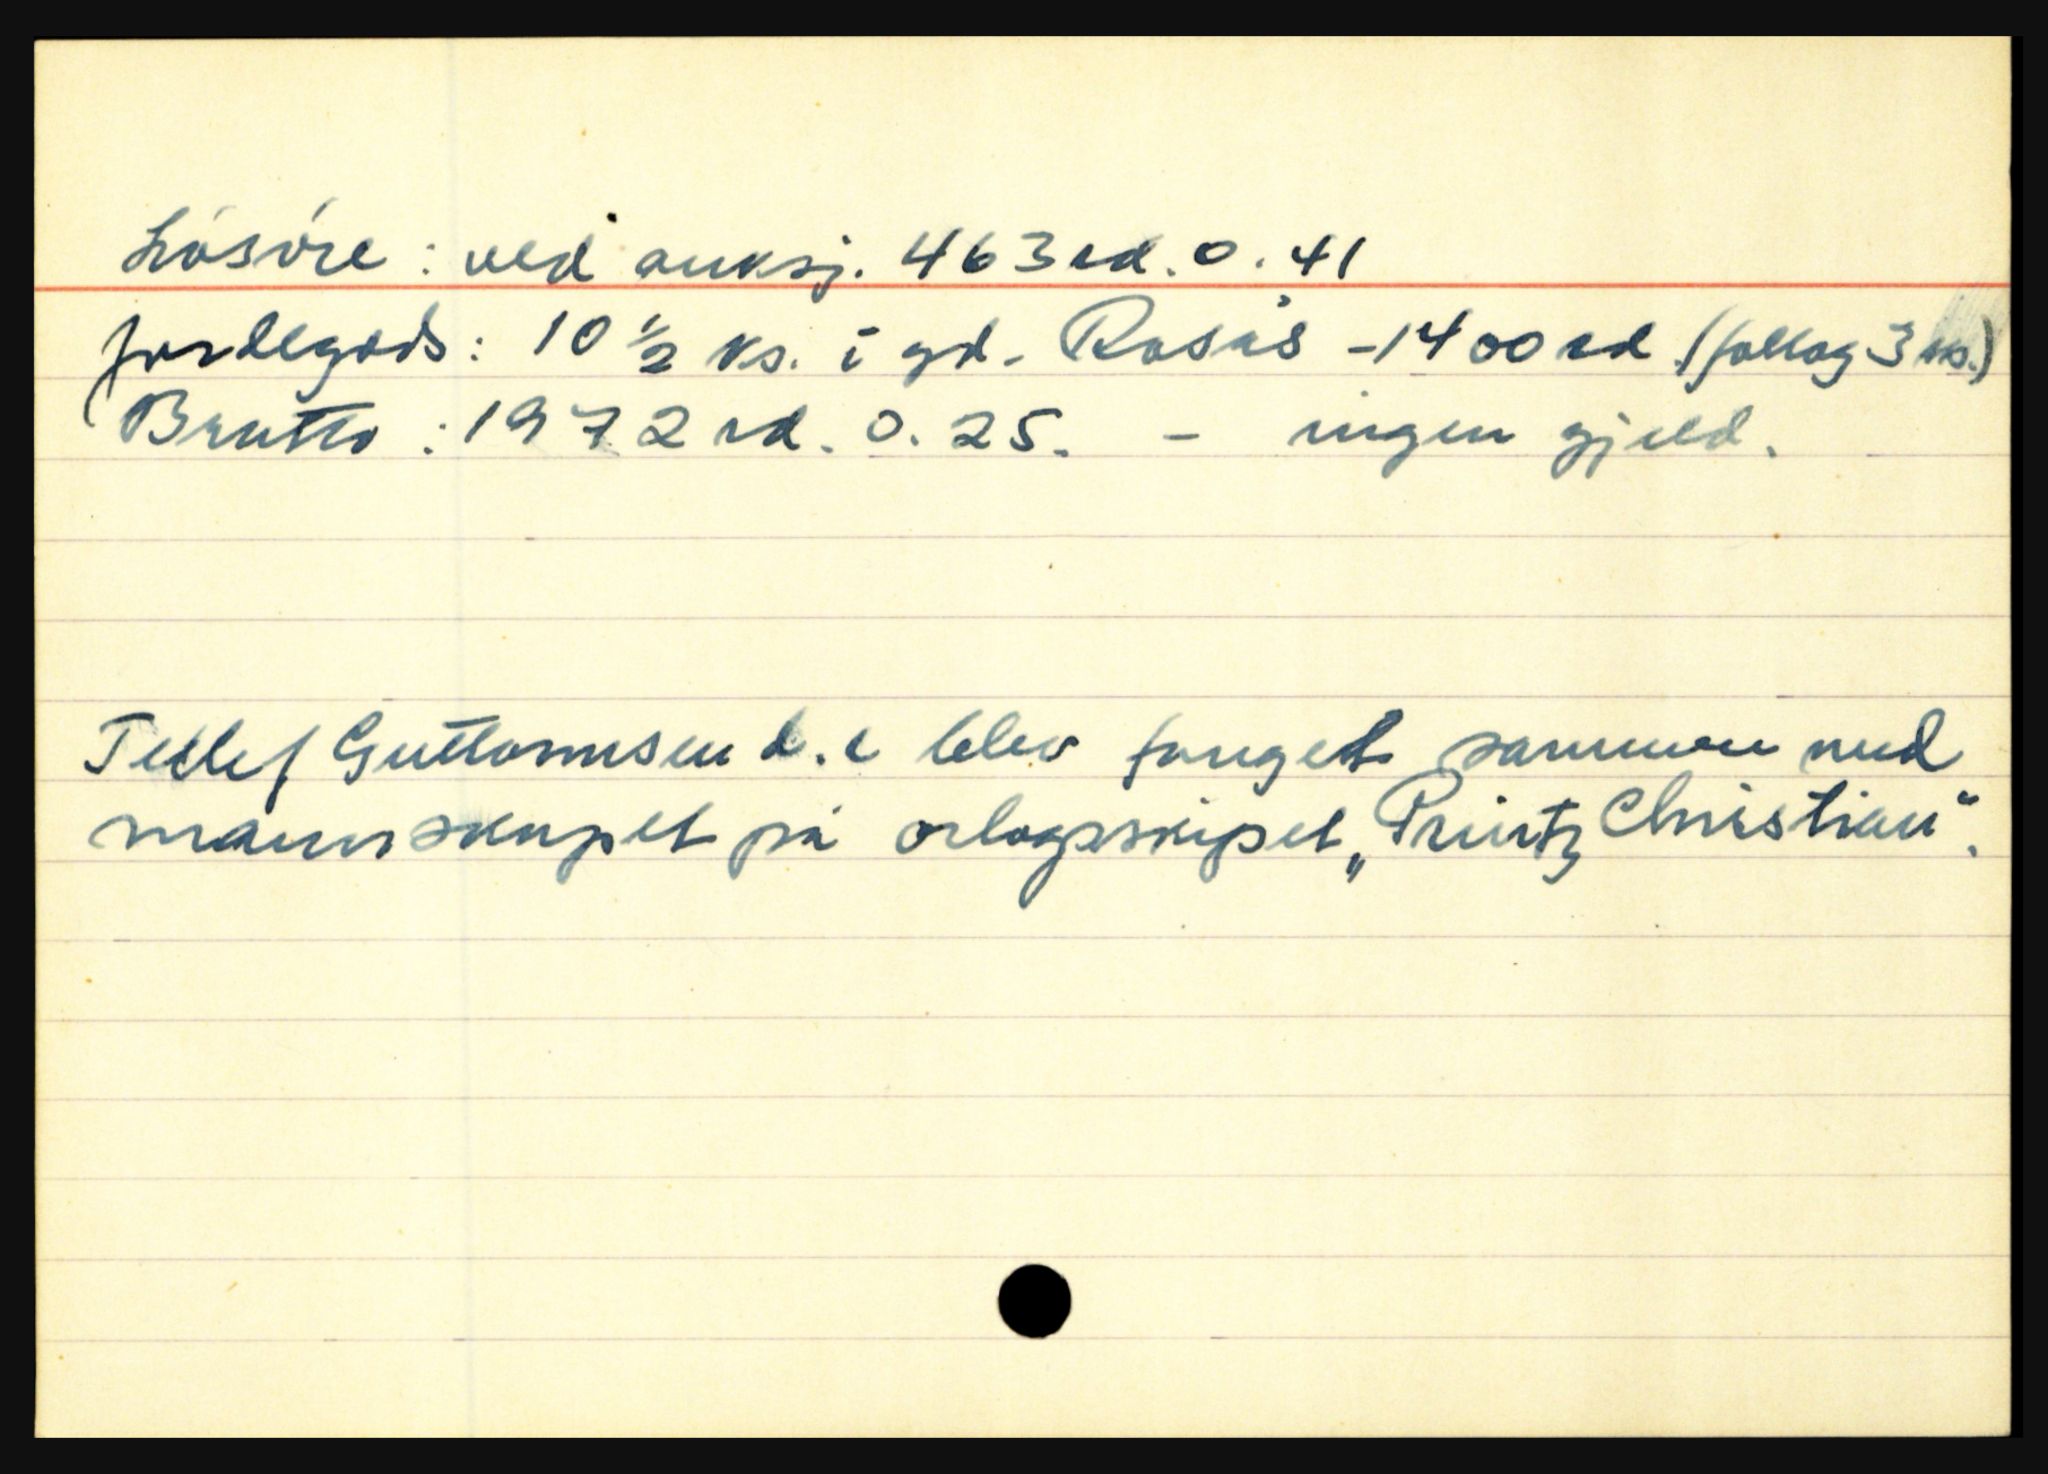 Lösöre: ved auksj. 463 rd. 0. 41
Jordegods: 10 ½ ks. i gd. Rosås - 1400 rd (follog 3 ks.)
Brutto: 1972 rd. 0. 25. - ingen gjeld.
Tellef Guttormsen d. e blev fanget sammen med
mannskapet på orlogsskipet „Printz Christian“.